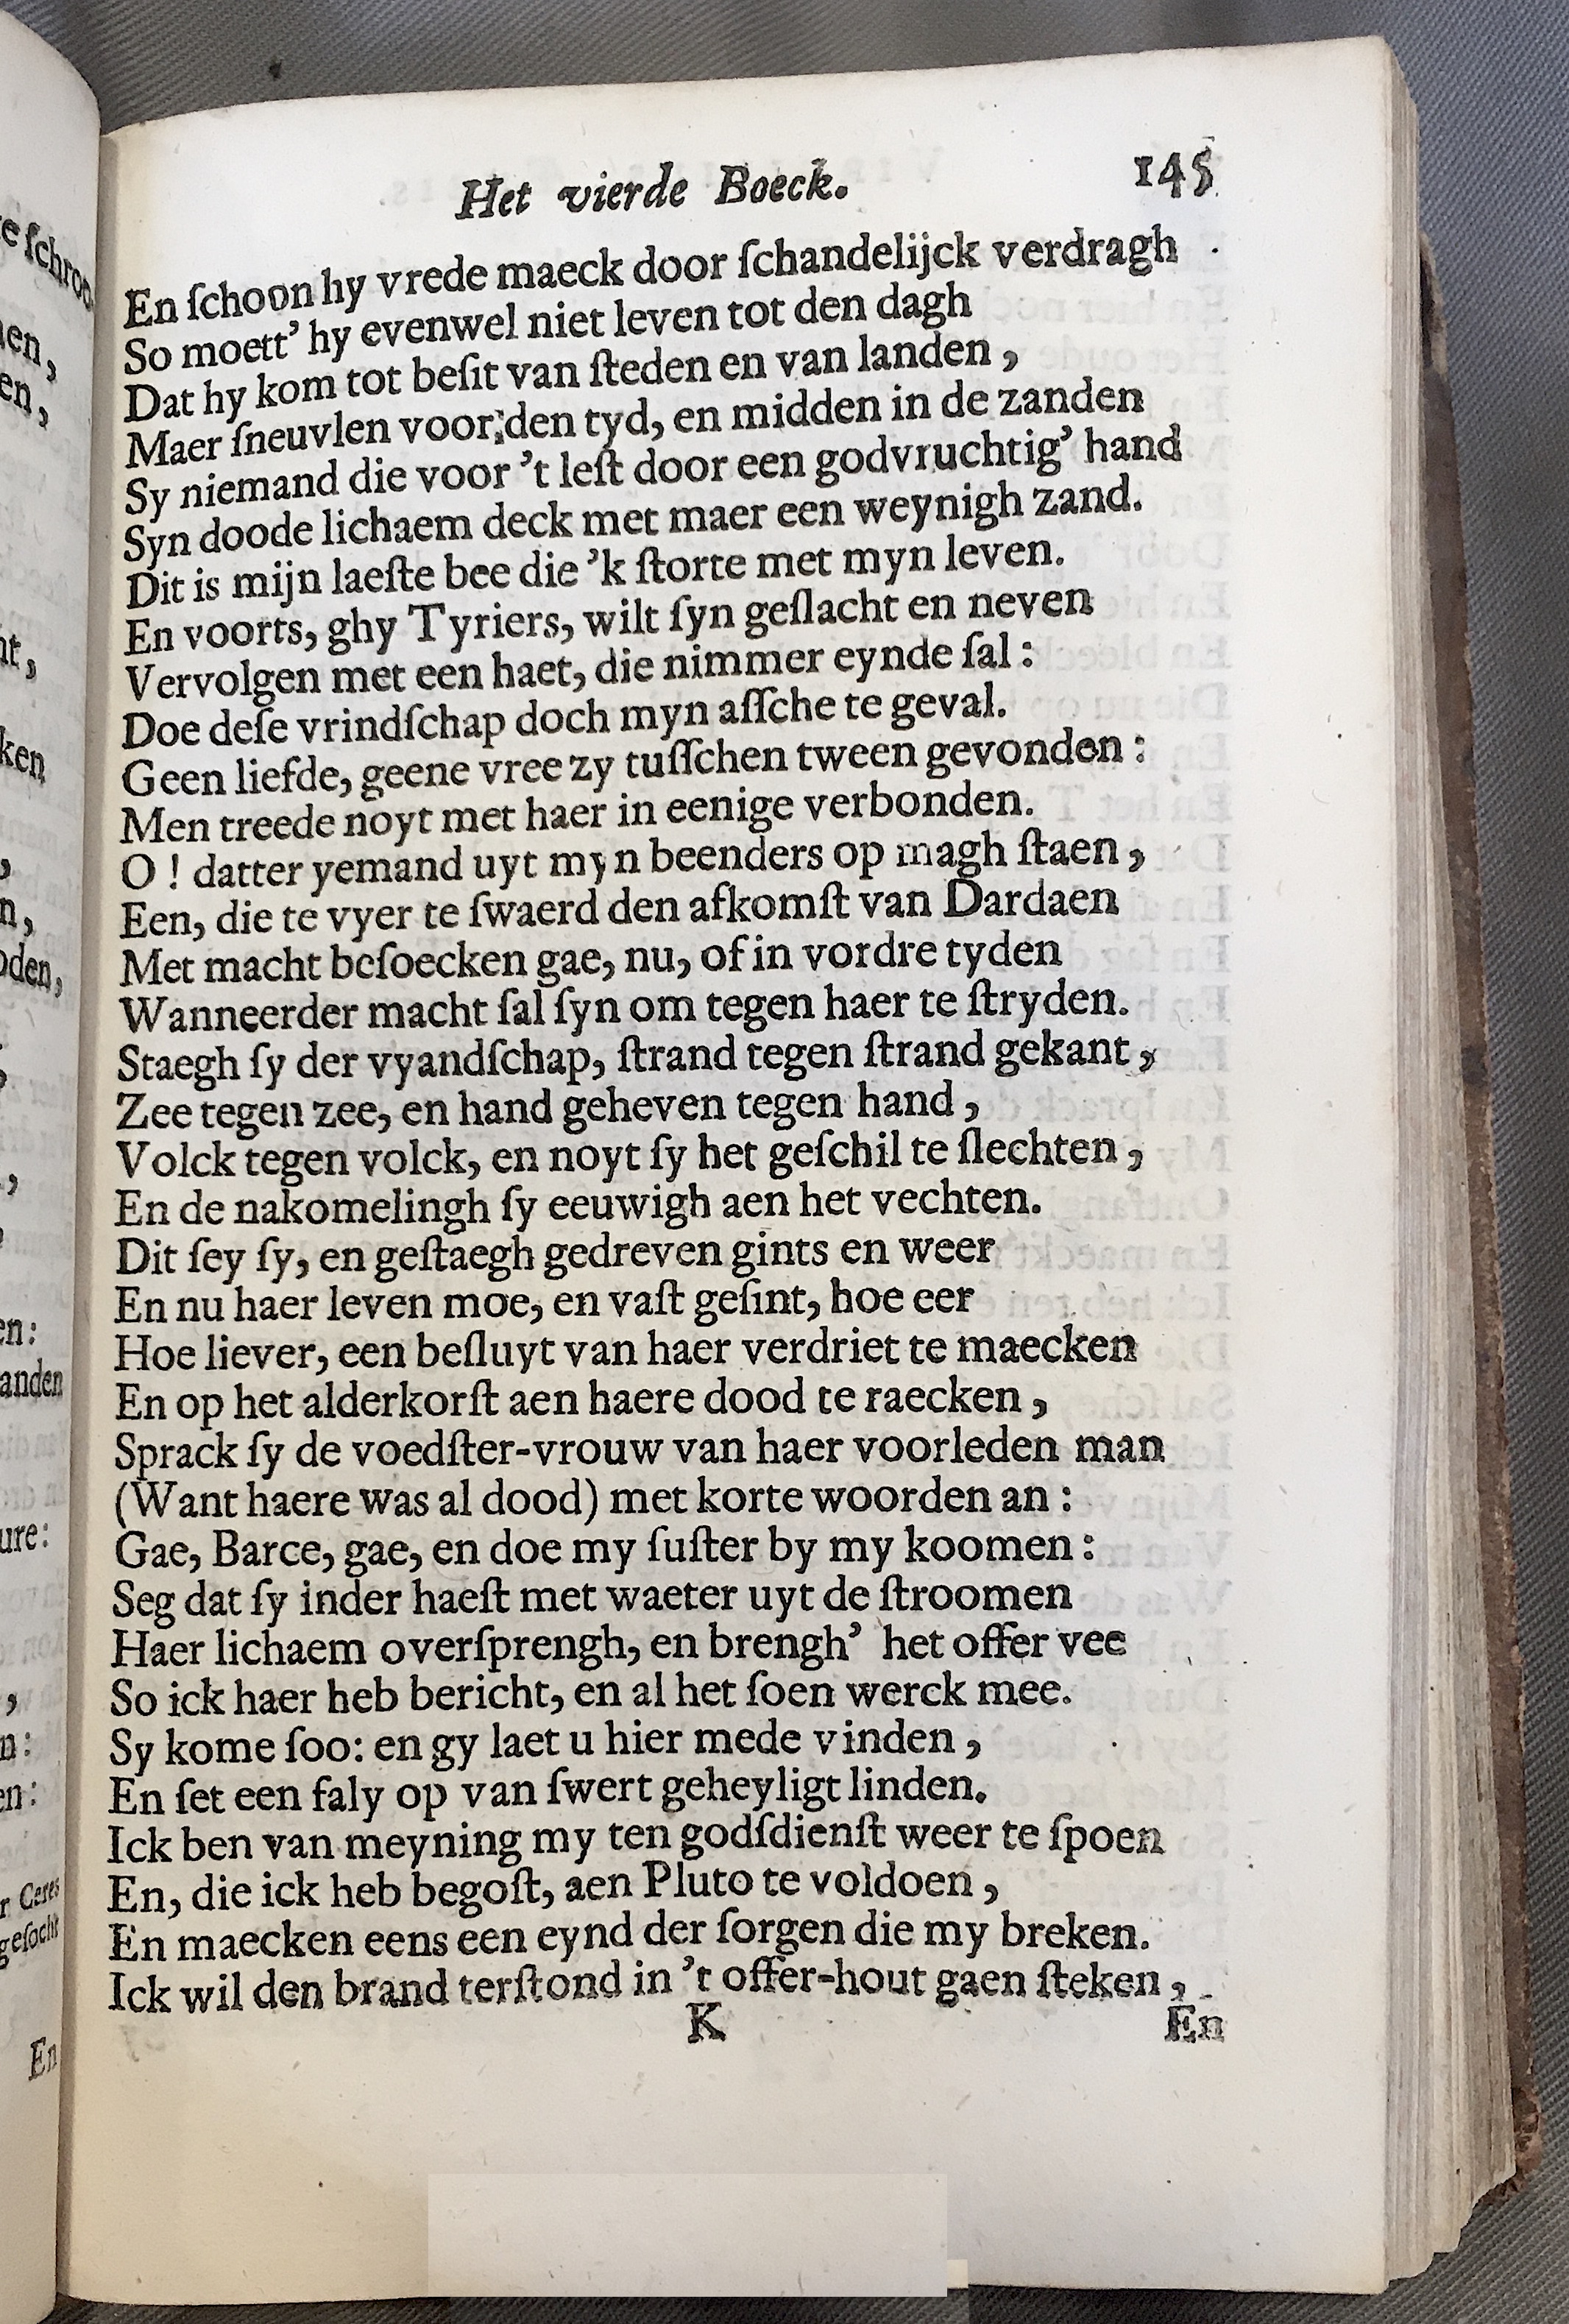 Het vierde Boeck. 145
En ſchoon hy vrede maeck door ſchandelijck verdragh
So moett’ hy evenwel niet leven tot den dagh
Dat hy kom tot beſit van ſteden en van landen,
Maer ſneuvlen voor den tyd, en midden in de zanden
Sy niemand die voor ’t leſt door een godvruchtig’ hand
Syn doode lichaem deck met maer een weynigh zand.
Dit is mijn laeſte bee die ’k ſtorte met myn leven.
En voorts, ghy Tyriers, wilt ſyn geſlacht en neven
Vervolgen met een haet, die nimmer eynde ſal:
Doe deſe vrindſchap doch myn aſſche te geval.
Geen liefde, geene vree zy tuſſchen tween gevonden:
Men treede noyt met haer in eenige verbonden.
O! datter yemand uyt myn beenders op magh ſtaen,
Een, die te vyer te ſwaerd den afkomſt van Dardaen
Met macht beſoecken gae, nu, of in vordre tyden
Wanneerder macht ſal ſyn om tegen haer te ſtryden.
Staegh ſy der vyandſchap, ſtrand tegen ſtrand gekant,
Zee tegen zee, en hand geheven tegen hand,
Volck tegen volck, en noyt ſy het geſchil te ſlechten,
En de nakomelingh ſy eeuwigh aen het vechten.
Dit ſey ſy, en geſtaegh gedreven gints en weer
En nu haer leven moe, en vaſt geſint, hoe eer
Hoe liever, een beſluyt van haer verdriet te maecken
En op het alderkorſt aen haere dood te raecken,
Sprack ſy de voedſter-vrouw van haer voorleden man
(Want haere was al dood) met korte woorden an:
Gae, Barce, gae, en doe my ſuſter by my koomen:
Seg dat ſy inder haeſt met waeter uyt de ſtroomen
Haer lichaem overſprengh, en brengh’ het offer vee
So ick haer heb bericht, en al het ſoen werck mee.
Sy kome ſoo: en gy laet u hier mede vinden,
En ſet een faly op van ſwert geheyligt linden.
Ick ben van meyning my ten godſdienſt weer te ſpoen
En, die ick heb begoſt, aen Pluto te voldoen,
En maecken eens een eynd der ſorgen die my breken.
Ick wil den brand terſtond in ’t offer-hout gaen ſteken,
K En